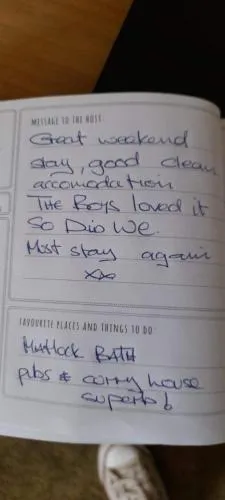 MESSAGE TO THE HOST
Great weekend
stay, good clean
accomodation
THE BOYS loved it
So DID WE.
Most stay again
xx
FAVOURITE PLACES AND THINGS TO DO
MATLOCK BATH
pubs & curry house
superb!